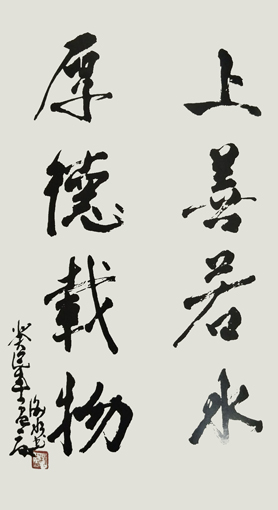 上善若水
厚德载物
癸巳年